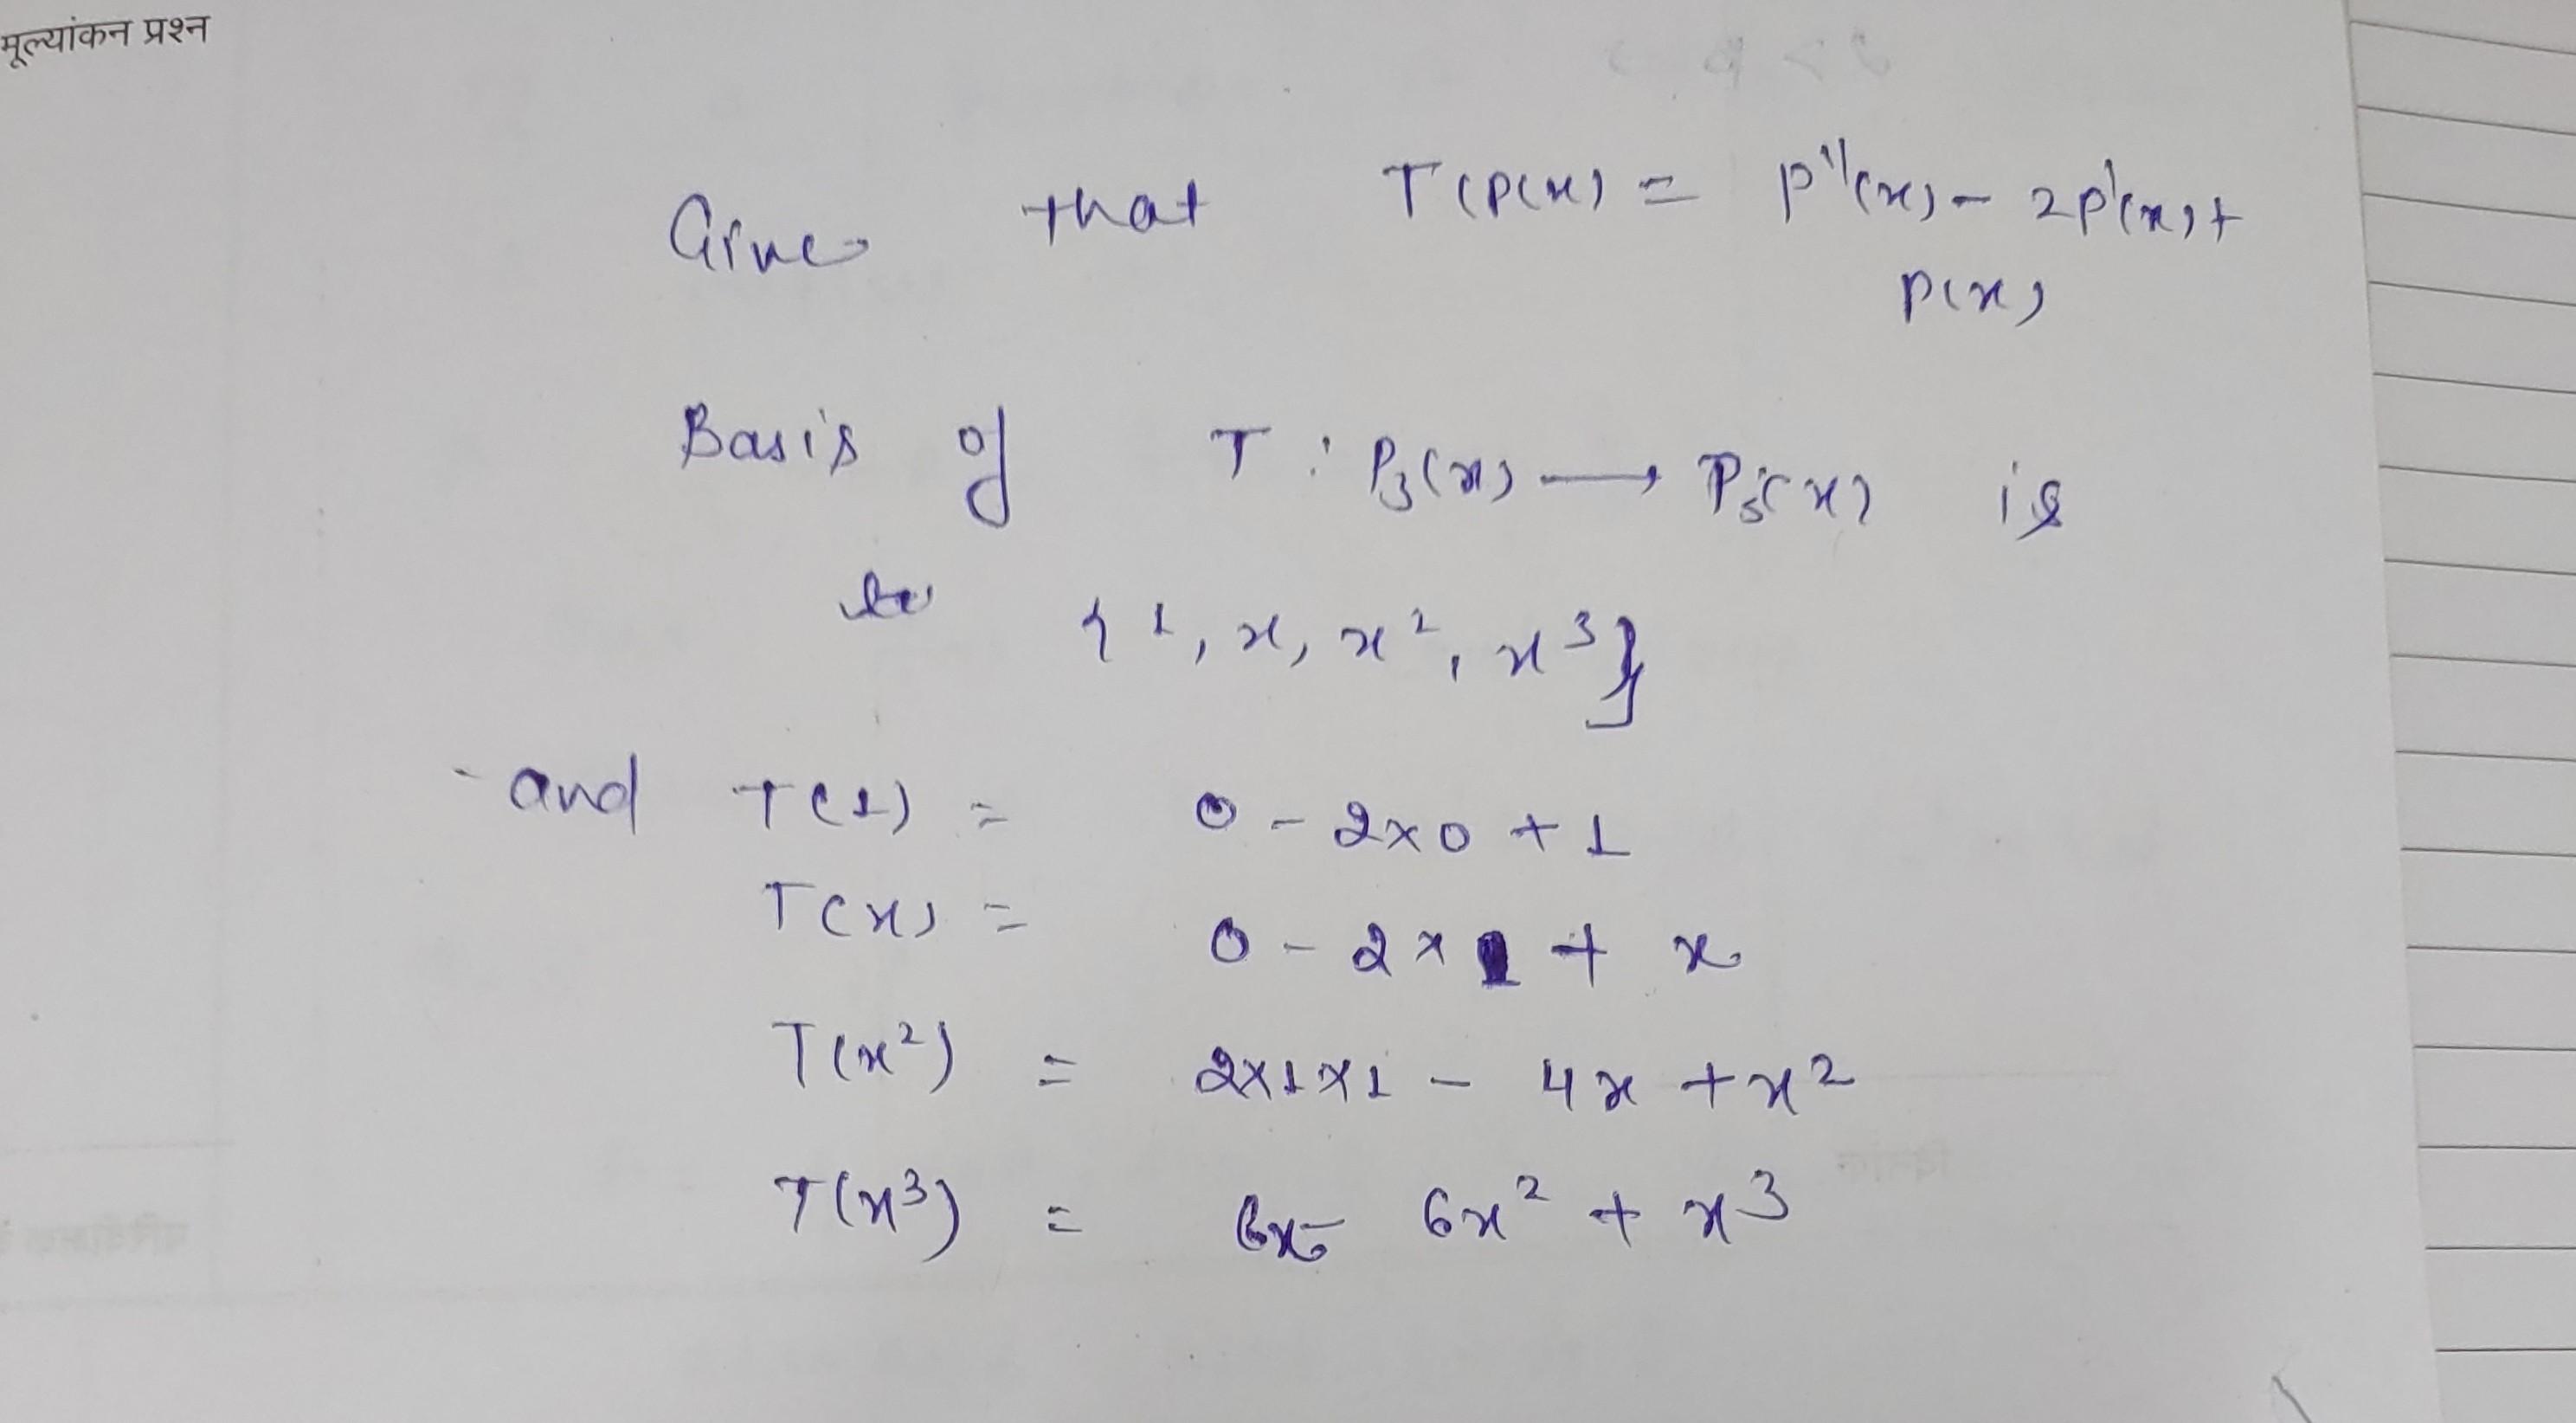 मूल्यांकन प्रश्न
Given that T(P(x) = P''(x) - 2P'(x) +
P(x)
Basis of T : P₃(x) → P₃(x) is
{1, x, x², x³}
and T(1) = 0 - 2×0 + 1
T(x) = 0 - 2×1 + x
T(x²) = 2×1×1 - 4x + x²
T(x³) = 6x - 6x² + x³